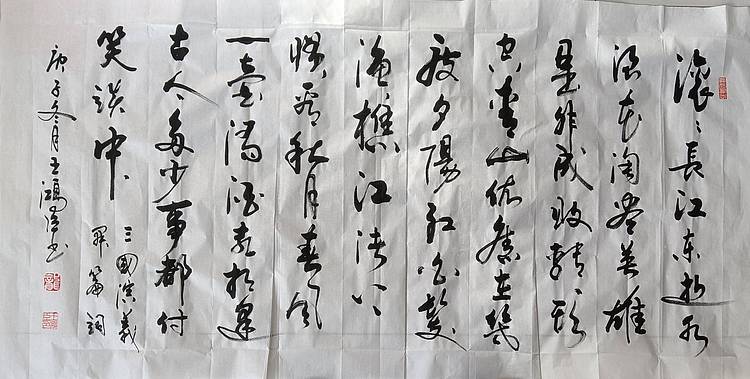 滚滚長江東逝水
浪花淘尽英雄
是非成敗轉头
空青山依舊在幾
度夕陽红白髮
漁樵江渚上
惯看秋月春风
一壶濁酒喜相逢
古今多少事都付
笑談中
三國演義
開篇詞
庚子冬月王鴻书